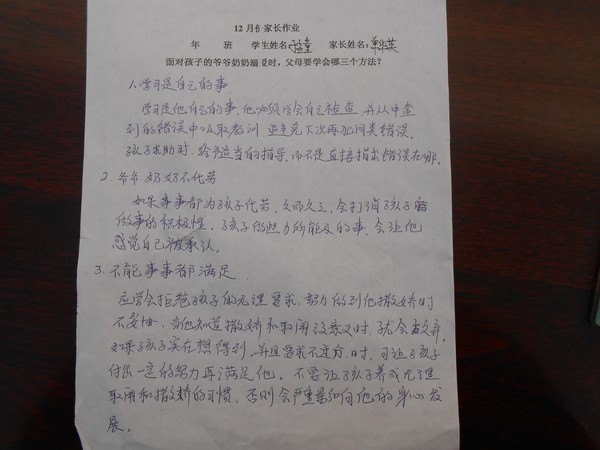 12月份家长作业
年 班 学生姓名: 家长姓名:
面对孩子的爷爷奶奶溺爱时，父母要学会哪三个方法？
1.学习是自己的事
学习是他自己的事，他必须学会自己检查，并从中查
到的错误中吸取教训，避免下次再犯同类错误。
孩子求助时，给予适当的指导，而不是直接指出错误在哪。
2.爷爷奶奶不代劳
如果事事都为孩子代劳，久而久之，会打消孩子
做事的积极性。孩子做些力所能及的事，会让他
感觉自己被承认。
3.不能事事都满足
应学会拒绝孩子的无理要求，努力做到他撒娇时
不妥协，当他知道撒娇和取闹没意义时，就会放弃。
如果孩子实在想得到，并且要求不过分时，可让孩子
付出一定的努力再满足他。不要让孩子养成无理
取闹和撒娇的习惯，否则会严重影响他的身心发
展。